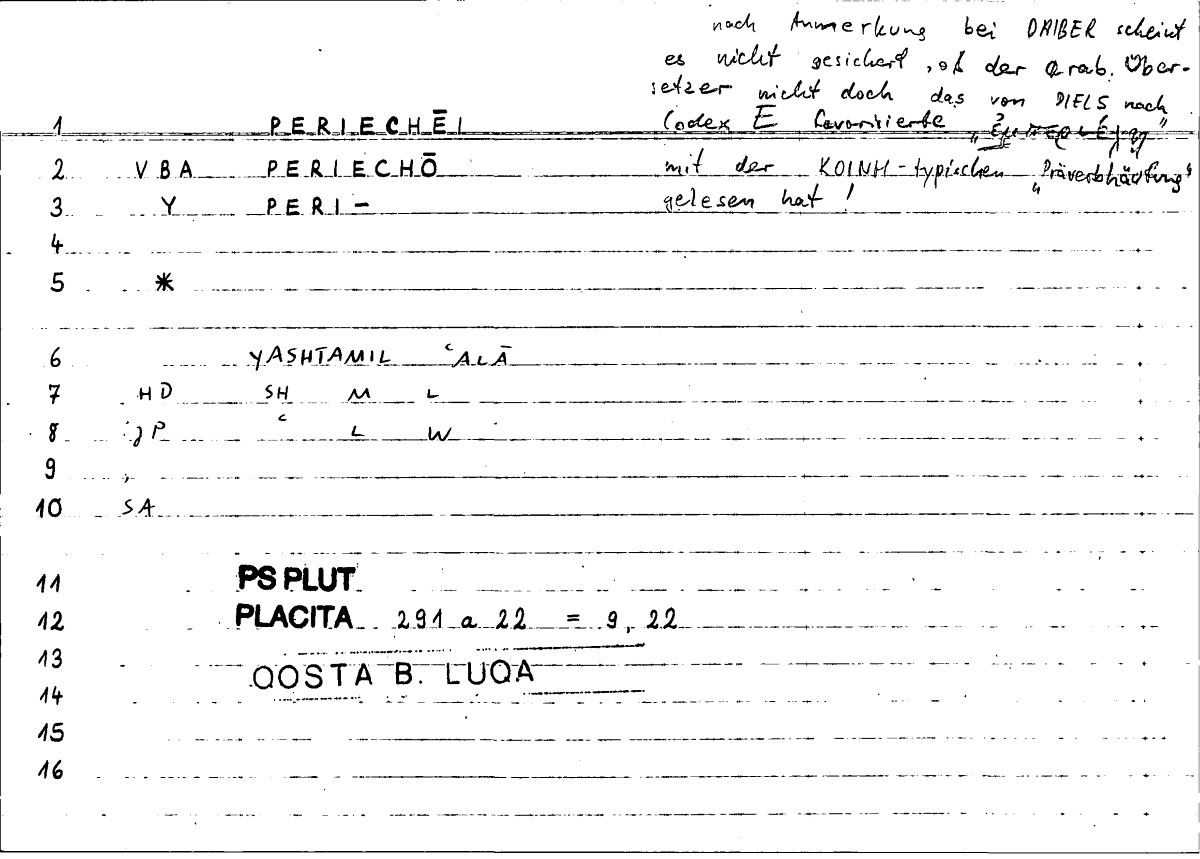 nach Anmerkung bei DAIBER scheint
es nicht gesichert, ob der arab. Über-
setzer nicht doch das von DIELS nach
Codex E favorisierte „ἐμπεριέχῃ“
mit der KOINH-typischen „Präverbhäufung“
gelesen hat!
1 PERIECHĒI
2 VBA PERIECHŌ
3 Y PERI-
4
5 *
6 YASHTAMIL ʿALĀ
7 HD SH M L
8 JP ʿ L W
9 ,
10 SA
11 PS PLUT
12 PLACITA 291 a 22 = 9, 22
13
QOSTA B. LUQA
14
15
16